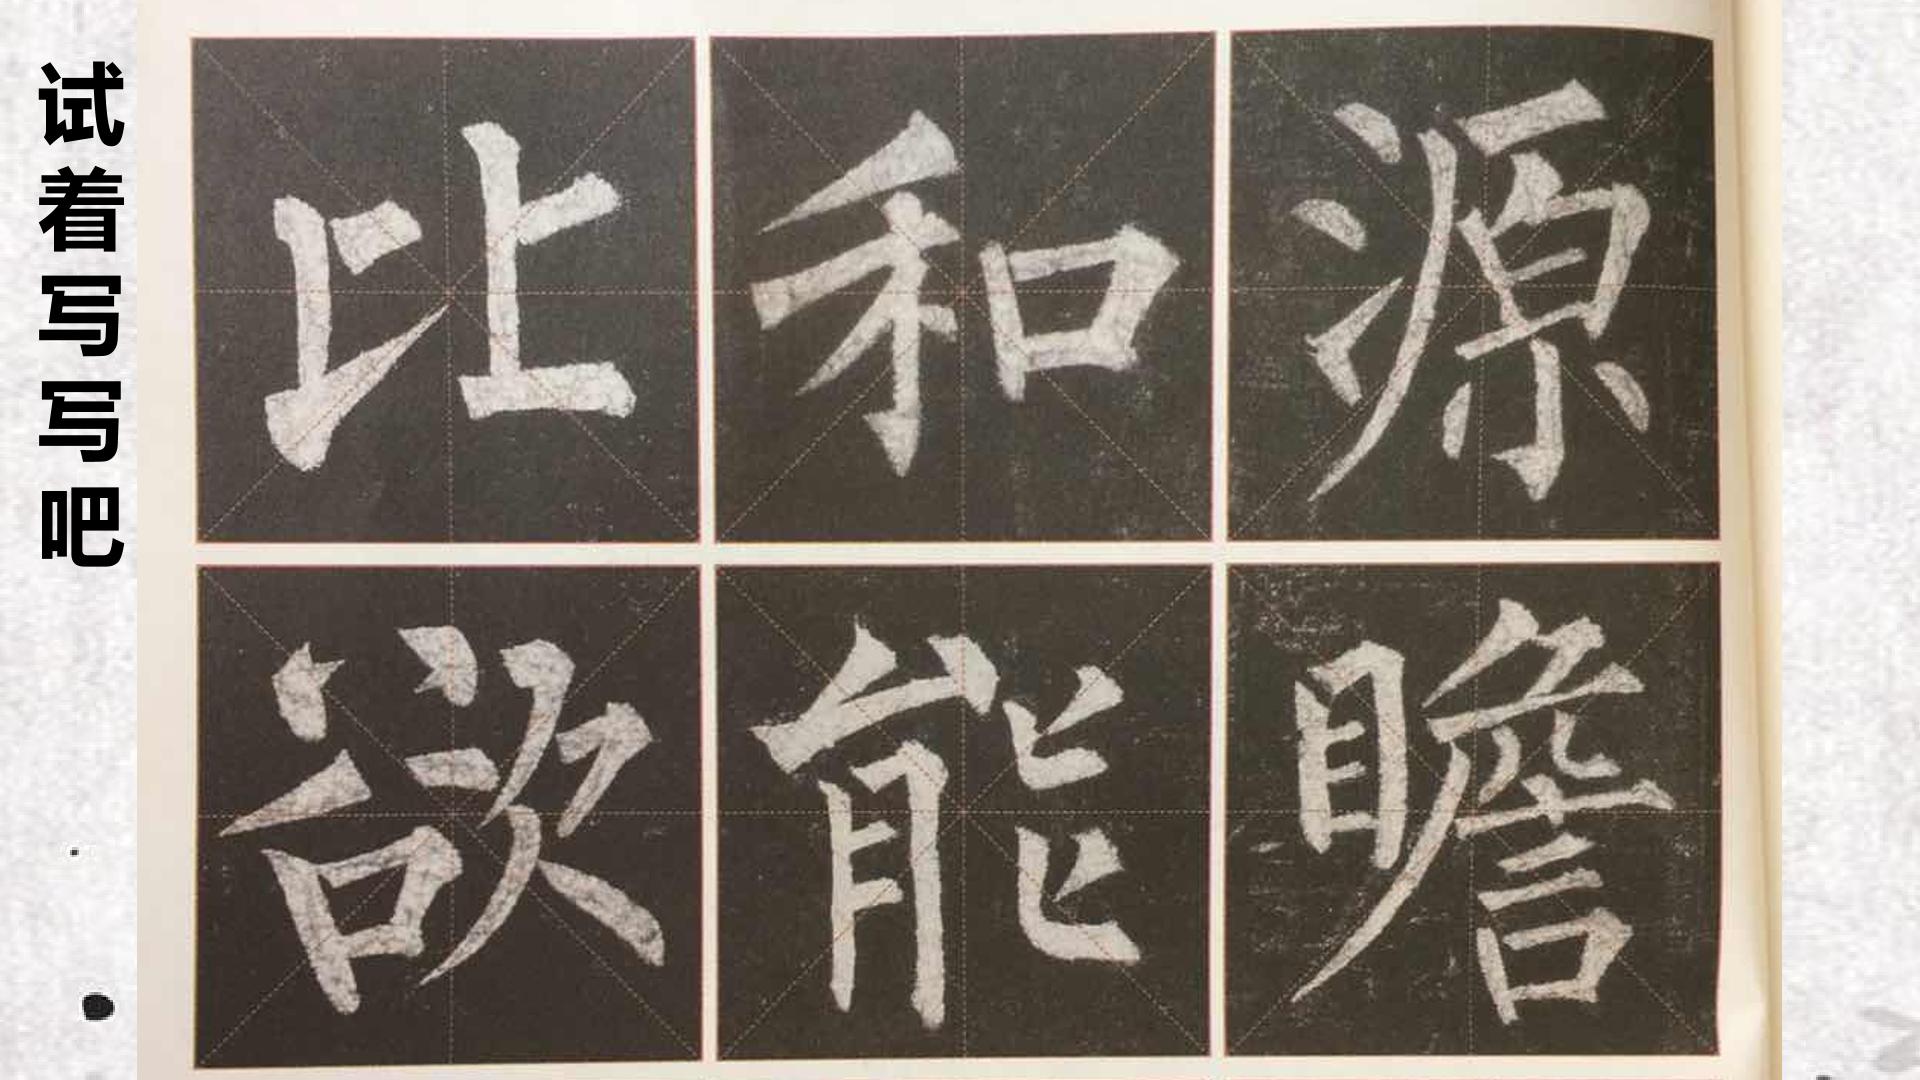 试着写写吧
比和源
欲能瞻